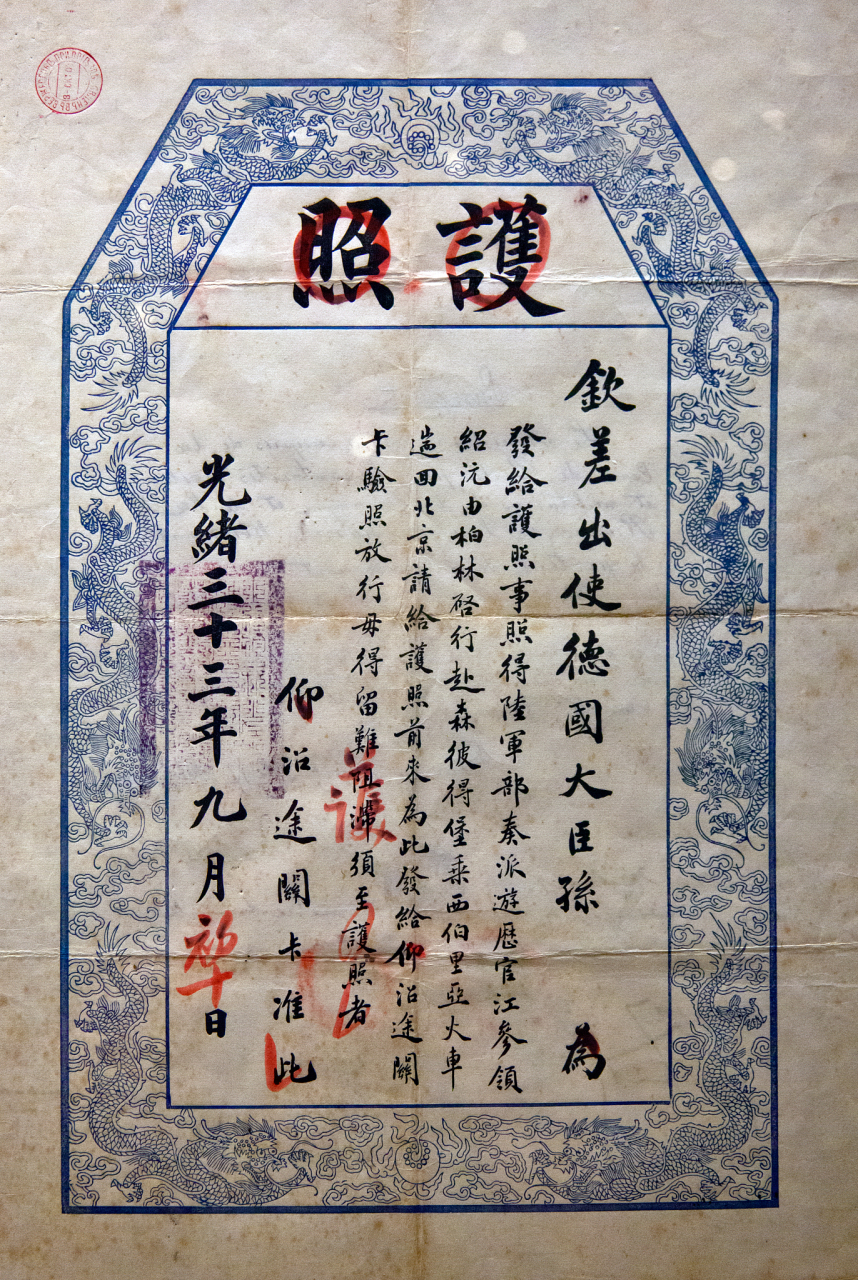 護照
欽差出使德國大臣孫 為
發給護照事照得陸軍部奏派遊歷官江參領
紹沅由柏林啓行赴森彼得堡乘西伯里亞火車
遄回北京請給護照前來為此發給仰沿途關
卡驗照放行毋得留難阻滯須至護照者
護
仰沿途關卡准此
光緒三十三年九月初十日